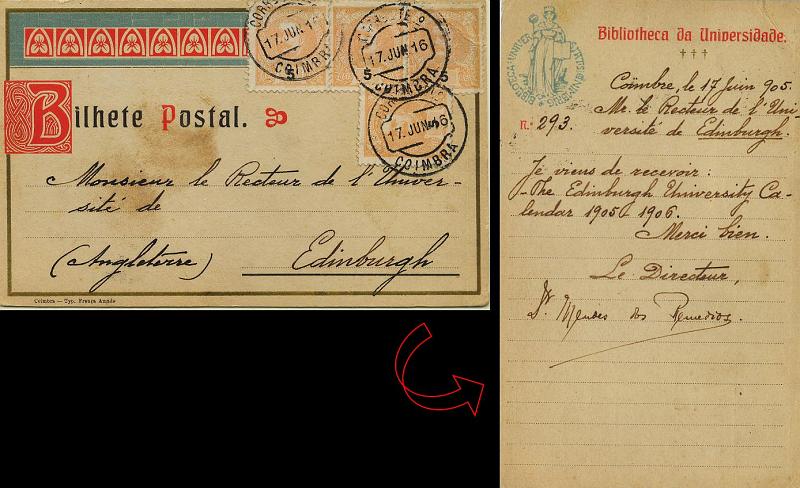 17 JUN 16
5
COIMBRA
17 JUN 16
5
COIMBRA
5
17 JUN 16
COIMBRA
Bilhete Postal.
Monsieur le Recteur de l'Univer-
sité de
(Angleterre) Edinburgh
Coimbra — Typ. França Amado
Bibliotheca da Universidade.
Coïmbre, le 17 Juin 905.
N.º 293.
Mr. le Recteur de l'Uni
versité de Edinburgh.
Je viens de recevoir:
-The Edinburgh University Ca-
lendar 1905-1906.
Merci bien.
Le Directeur,
Dr. Mendes dos Remedios.